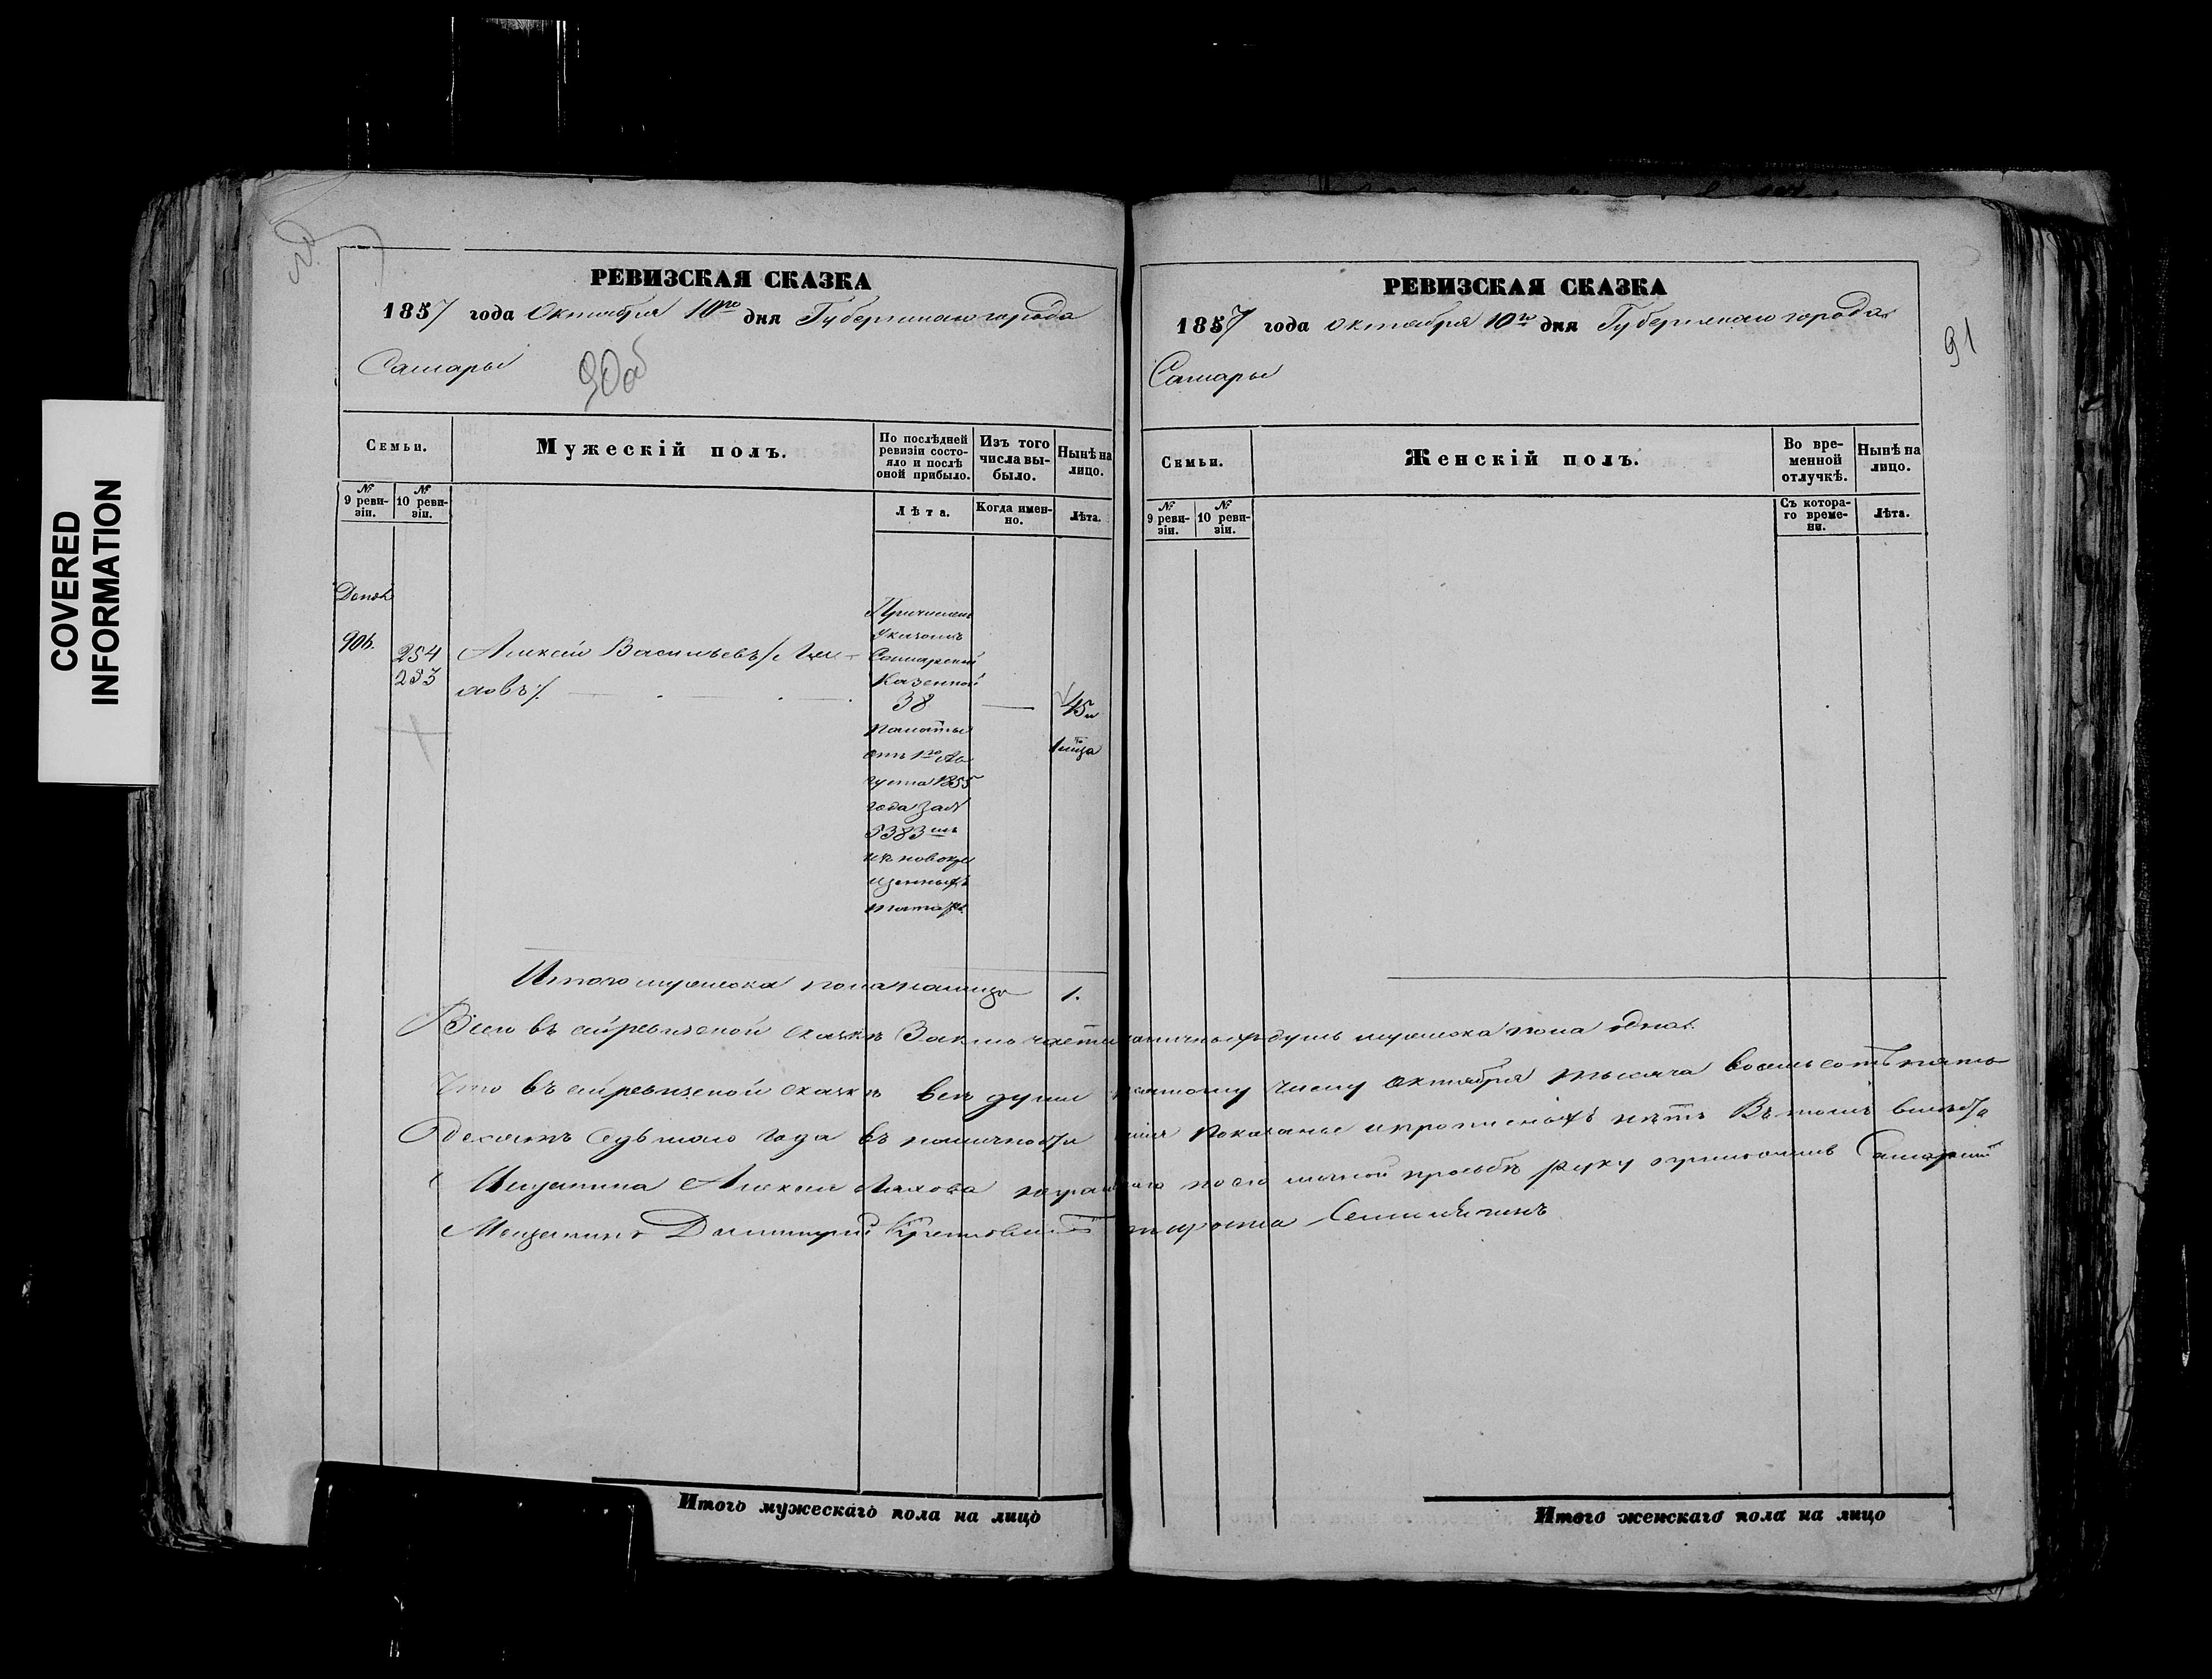 COVERED
INFORMATION
РЕВИЗСКАЯ СКАЗКА
1857 года Октября 10го дня Губернскаго города
Самары
90об
Семьи.
Мужескій полъ.
По послѣдней ревизіи состояло и послѣ оной прибыло.
Изъ того числа выбыло.
Нынѣ на лицо.
№ 9 ревизіи.
№ 10 ревизіи.
Лѣта.
Когда именно.
Лѣта.
906.
254
Алексѣй Васильевъ /
ховъ /.
Причисленъ
указомъ
Самарской
Казенной
38
45
Палаты
отъ 1го Ав
густа 1855
года за №
5383мъ
изъ новокре
щенныхъ
татаръ
Итого мужеска пола налицо 1.
Всего въ сей ревизской сказкѣ заключается наличныхъ душъ мужеска пола одна.
Что въ сей ревизской сказкѣ всѣ души десятому числу Октября тысяча восемьсотъ пять
десятъ седьмаго года въ наличности показаны и прописныхъ нѣтъ Въ томъ вмѣсто
Мещанина Алексея Ляхова неграмотнаго по его личной прозьбѣ руку приложилъ Самарскій
Мещанинъ Дмитрий
РЕВИЗСКАЯ СКАЗКА
1857 года октября 10го дня Губернскаго города
Самары
91
Семьи.
Женскій полъ.
Во временной отлучкѣ.
Нынѣ на лицо.
№ 9 ревизіи.
№ 10 ревизіи.
Съ котораго времени.
Лѣта.
Итого мужескаго пола на лицо
Итого женскаго пола на лицо